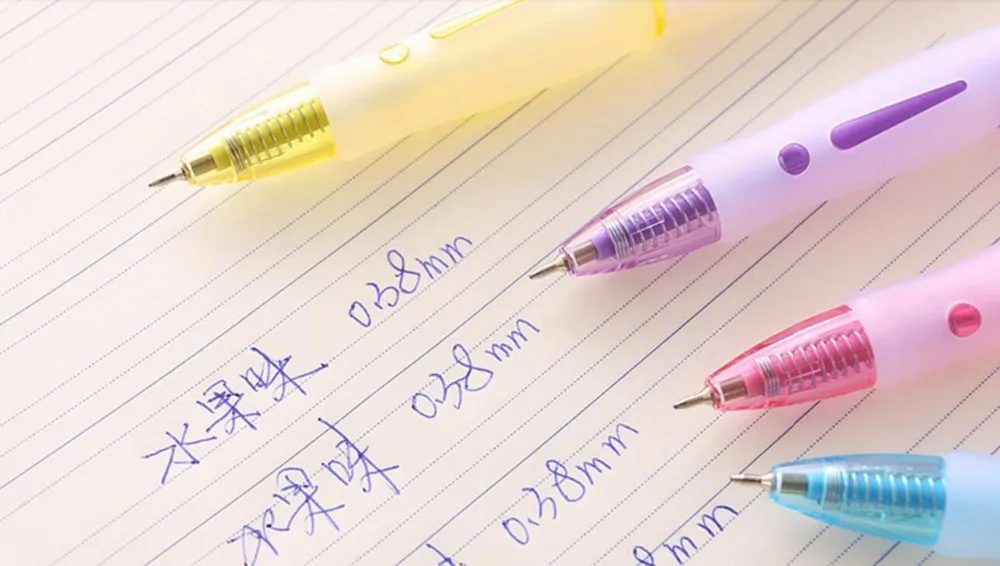 水果味 0.38mm
水果味 0.38mm
0.38mm
8mm